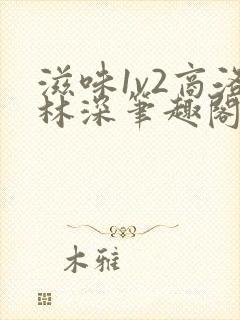 滋味1v2高洛
林深笔趣阁
木雅